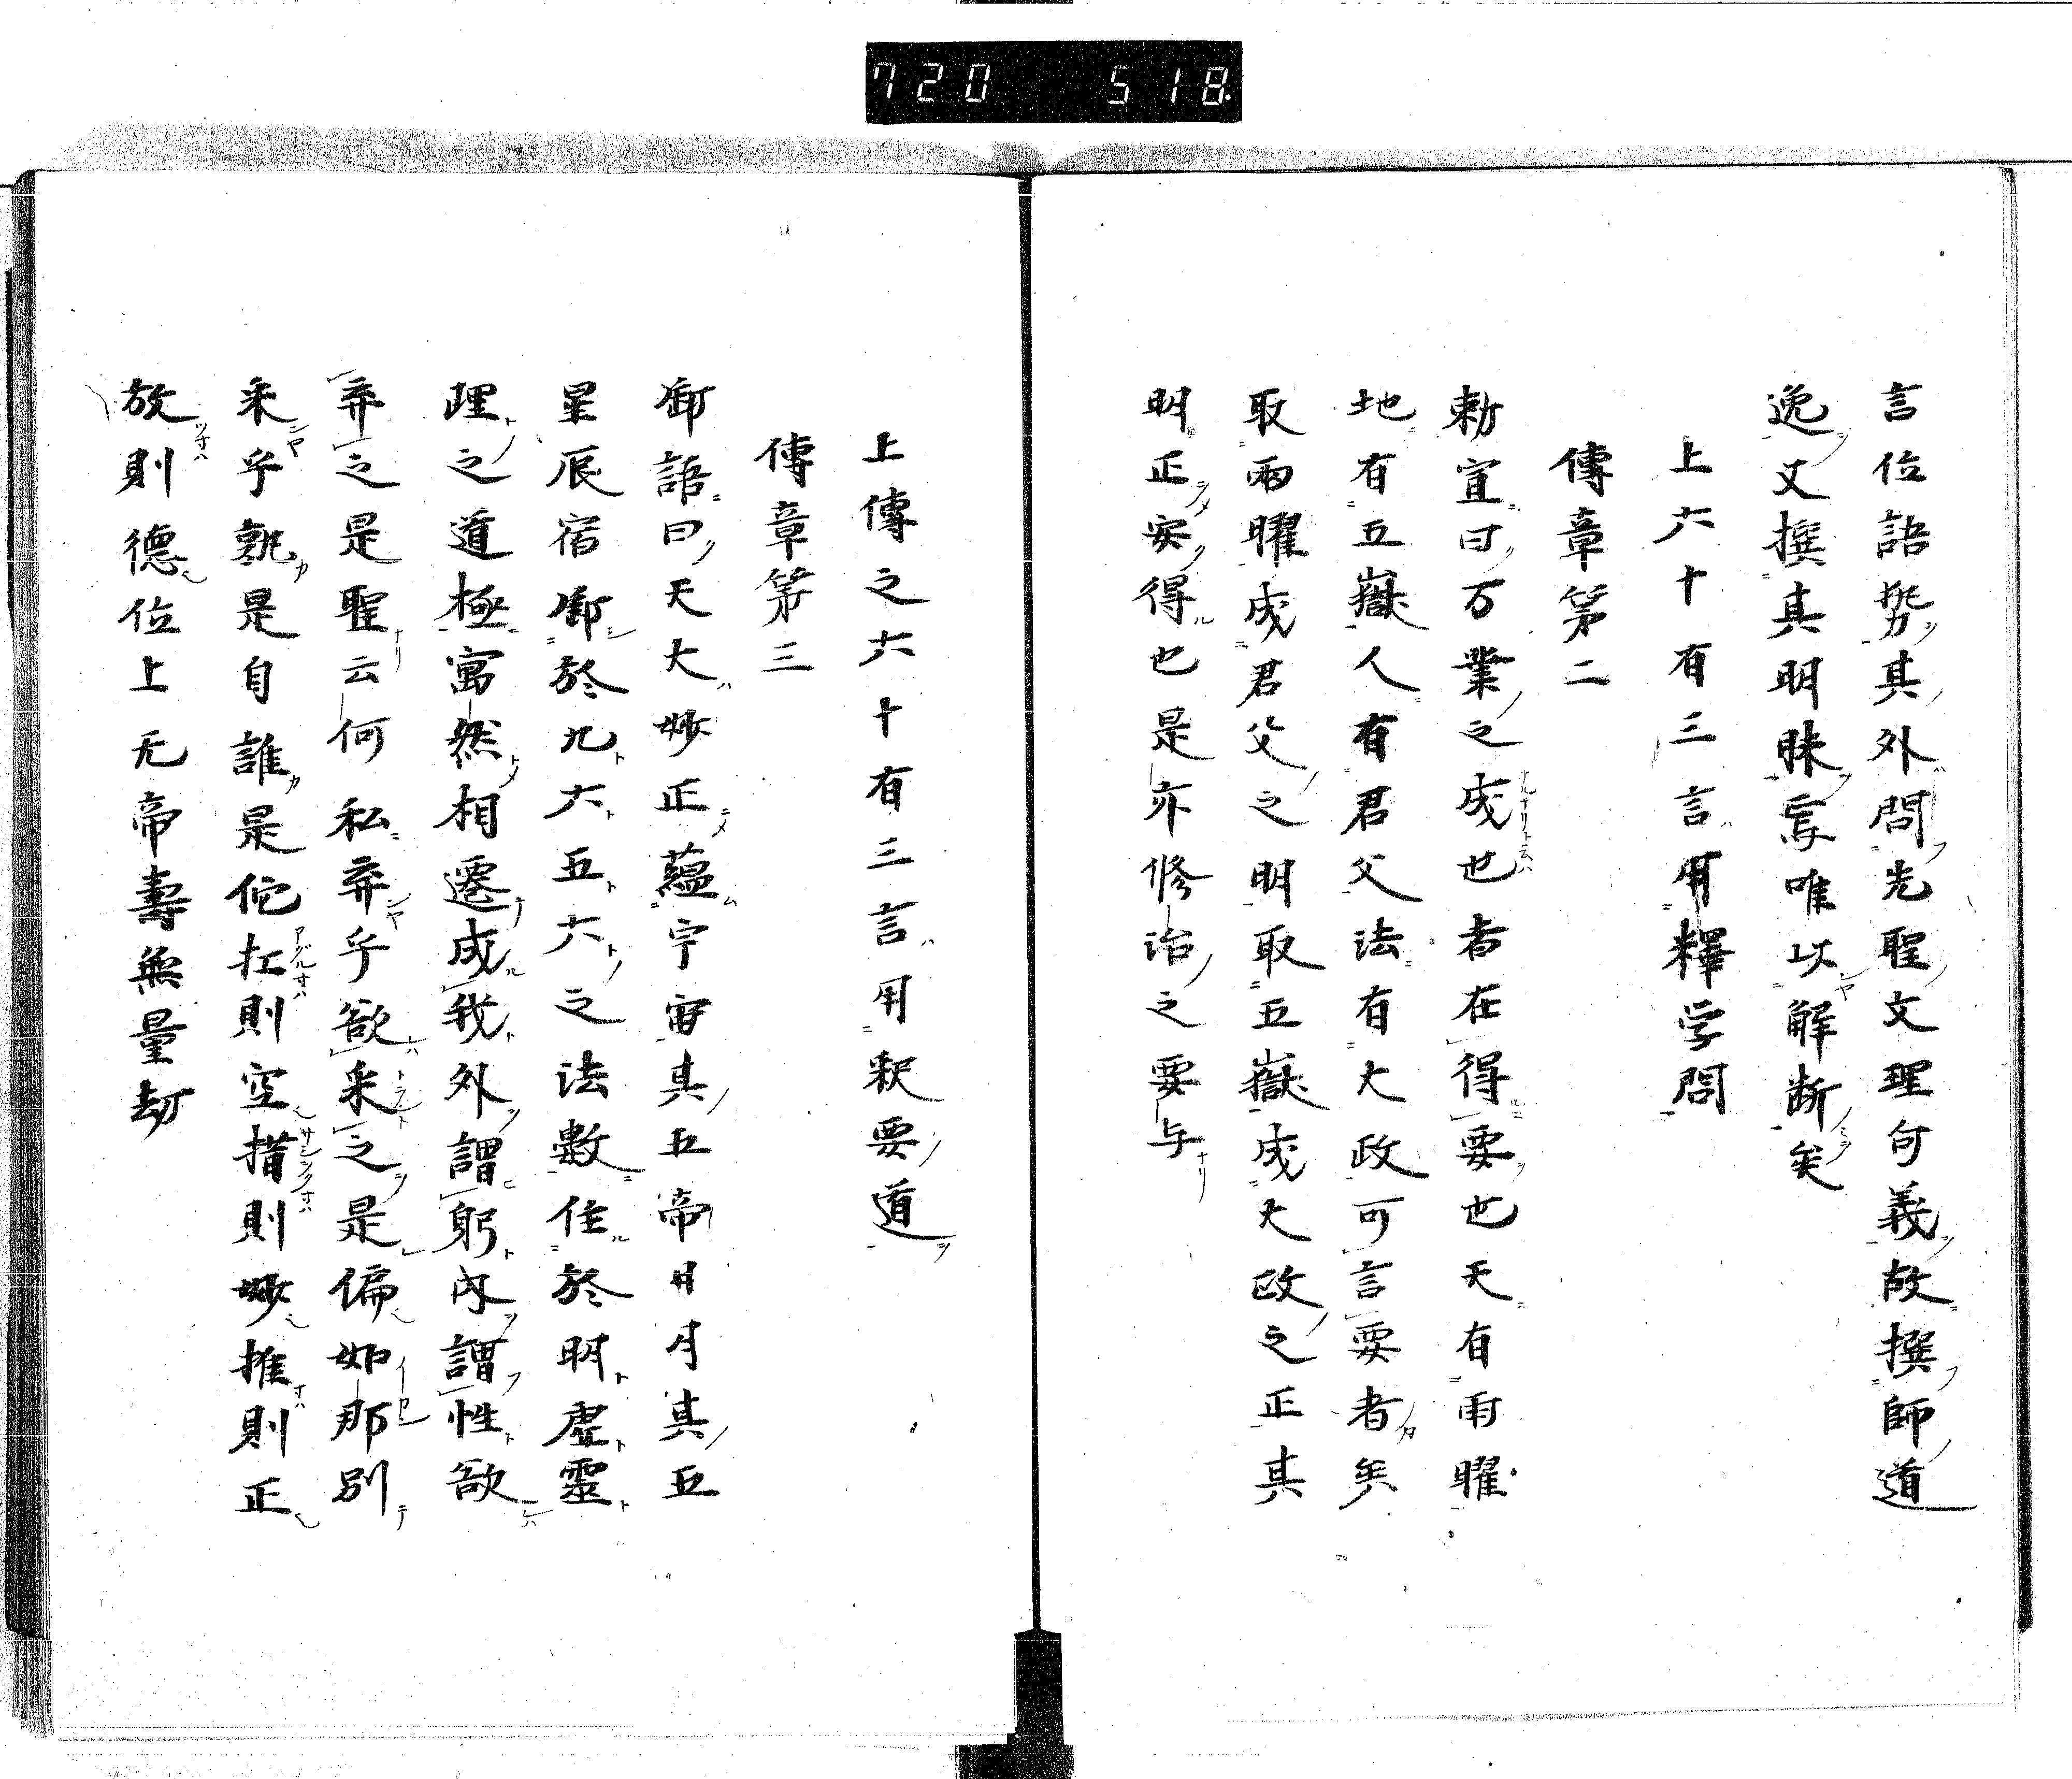 720 518
言位語勢其外問先聖文理句義故撰師道
逸文撰其明昧寫唯以解断矣
上六十有三言用釋学問
傳章第二
勅宣曰万業之成也者在得要也天有兩曜
地有五嶽人有君父法有大政可言要者矣
取兩曜成君父之明取五嶽成大政之正其
明正安得也是亦修治之要与
上傳之六十有三言用釈要道
傳章第三
御語曰天大妙正蘊宁宙其五帝日月其五
星辰宿御於九六五六之法數住於明虚靈
理之道極寓然相遷成我外謂躬内謂性欲
弃之是聖云何私弃乎欲采之是偏如那別
采乎孰是自誰是佗扛則空措則妙推則正
放則德位上无帝壽無量劫